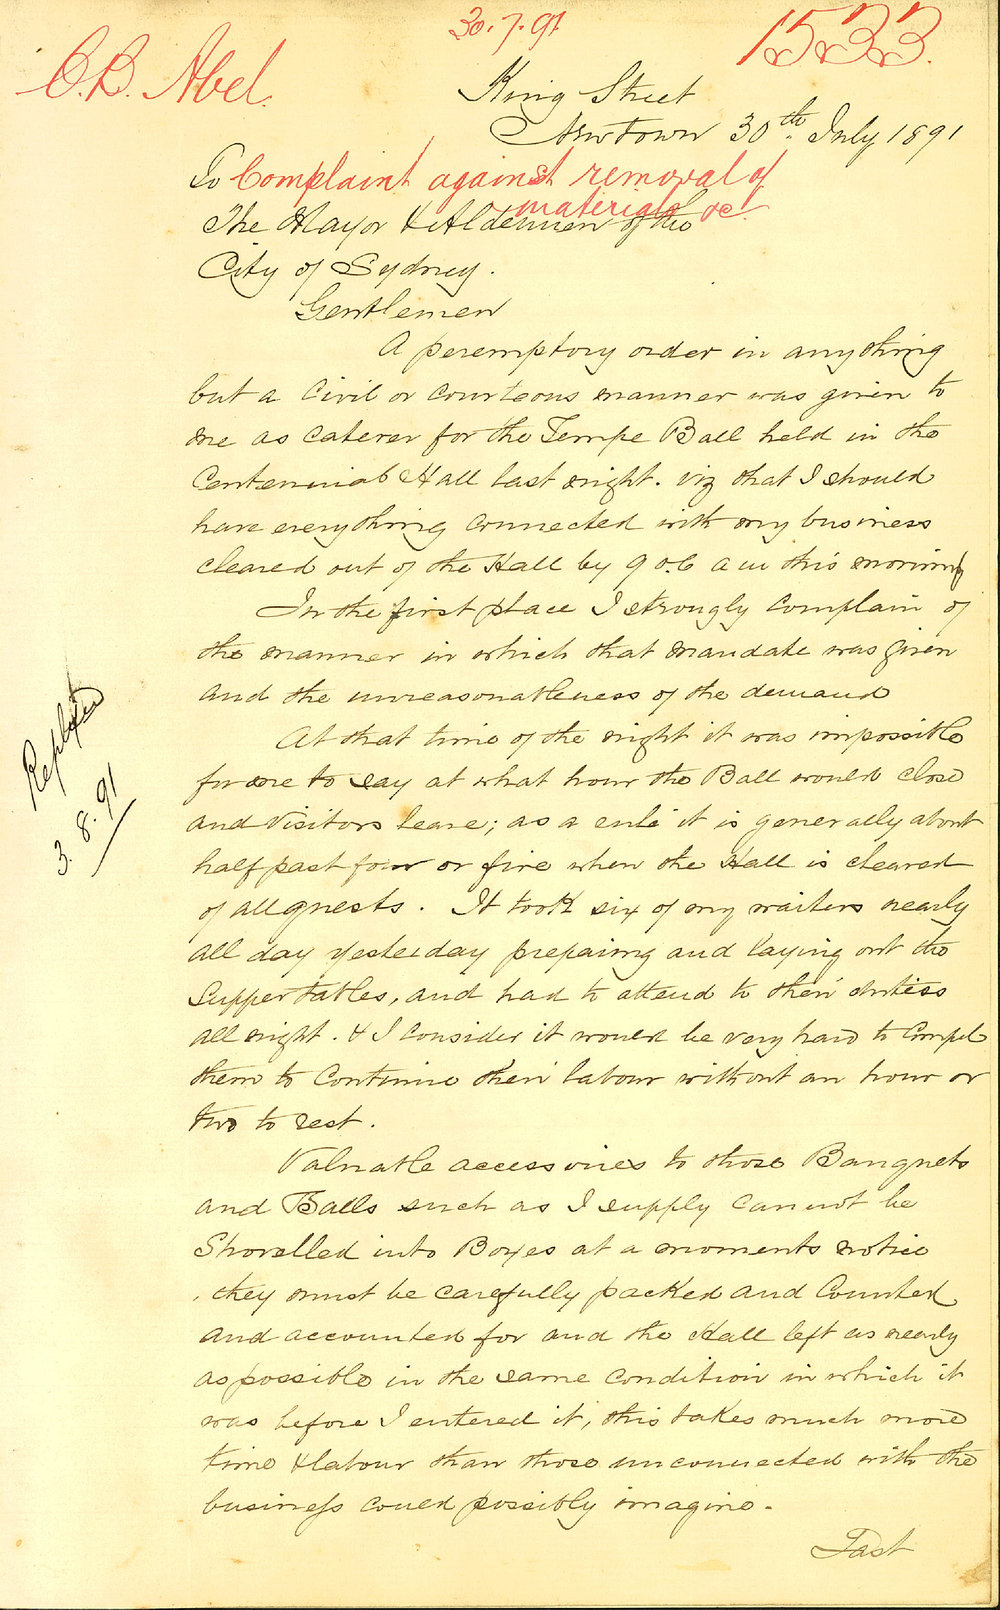 30.7.91
1533.
C.B. Abel.
King Street
Newtown 30th July 1891
To Complaint against removal of
materials &c
The Mayor & Aldermen of the
City of Sydney.
Gentlemen
A peremptory order in anything
but a Civil or Courteous manner was given to
me as Caterer for the Tempe Ball held in the
Centennial Hall last night. viz that I should
have everything connected with my business
cleared out of the Hall by 9 o.C a m this morning
In the first place I strongly complain of
the manner in which that mandate was given
and the unreasonableness of the demand
At that time of the night it was impossible
for me to say at what hour the Ball would close
and Visitors leave; as a rule it is generally about
half past four or five when the Hall is cleared
of all guests. It took six of my waiters nearly
all day yesterday prepairing and laying out the
Supper tables, and had to attend to their duties
all night. & I consider it would be very hard to Compel
them to Continue their labour without an hour or
two to rest.
Replied
3.8.91
Valuable accessories to those Banquets
and Balls such as I supply Cannot be
Shovelled into Boxes at a moments notice
, they must be carefully packed and Counted
and accounted for and the Hall left as nearly
as possible in the same Condition in which it
was before I entered it, this takes much more
time & labour than those unconnected with the
business could possibly imagine.
Last